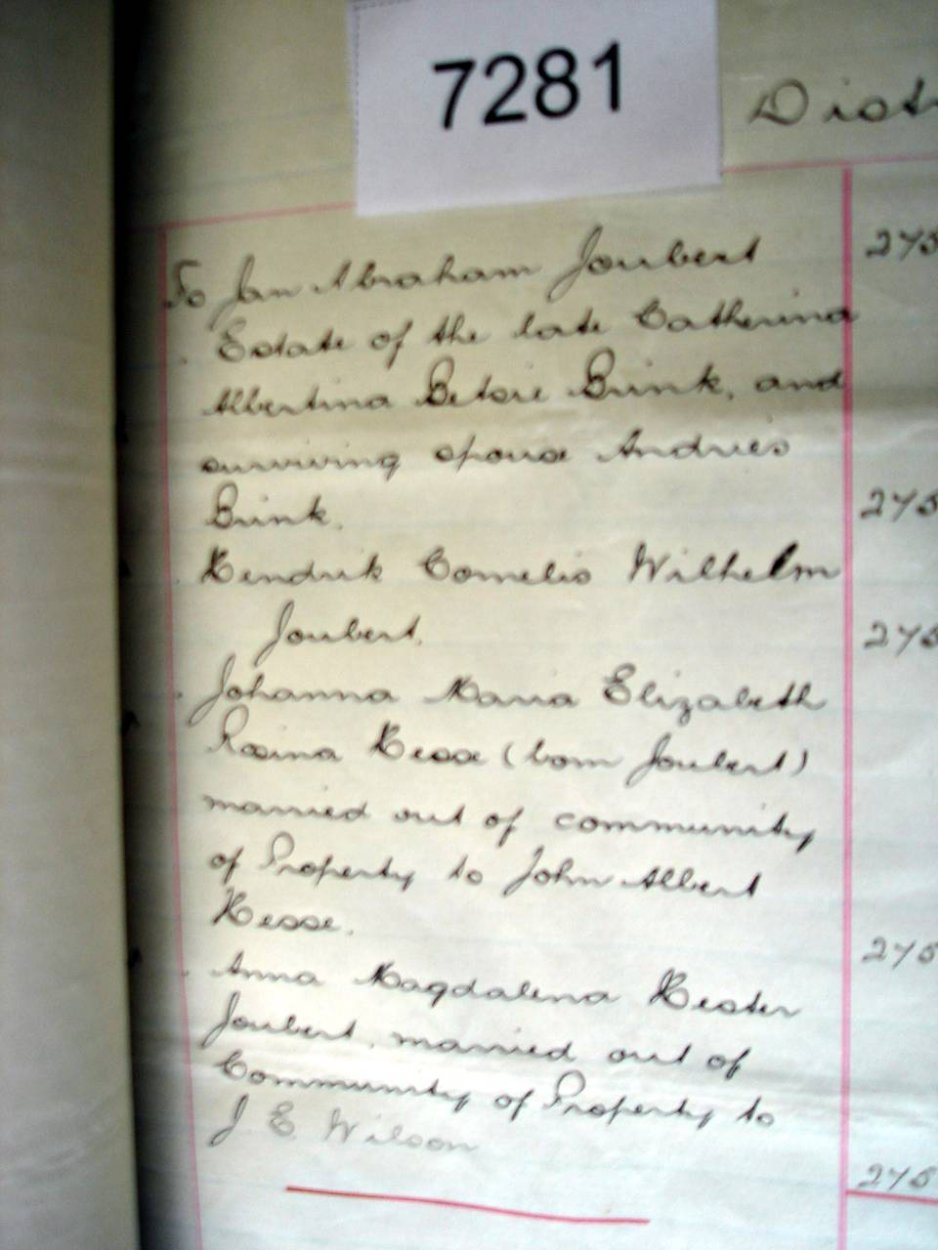 7281
Dist
To Jan Abraham Joubert 275
" Estate of the late Catherina
Albertina Betsie Brink, and
surviving spouse Andries
Brink. 275
" Hendrik Cornelis Wilhelm
Joubert. 275
" Johanna Maria Elizabeth
Rosina Hesse (born Joubert)
married out of community
of Property to John Albert
Hesse. 275
" Anna Magdalena Hester
Joubert, married out of
Community of Property to
J E Wilson
275